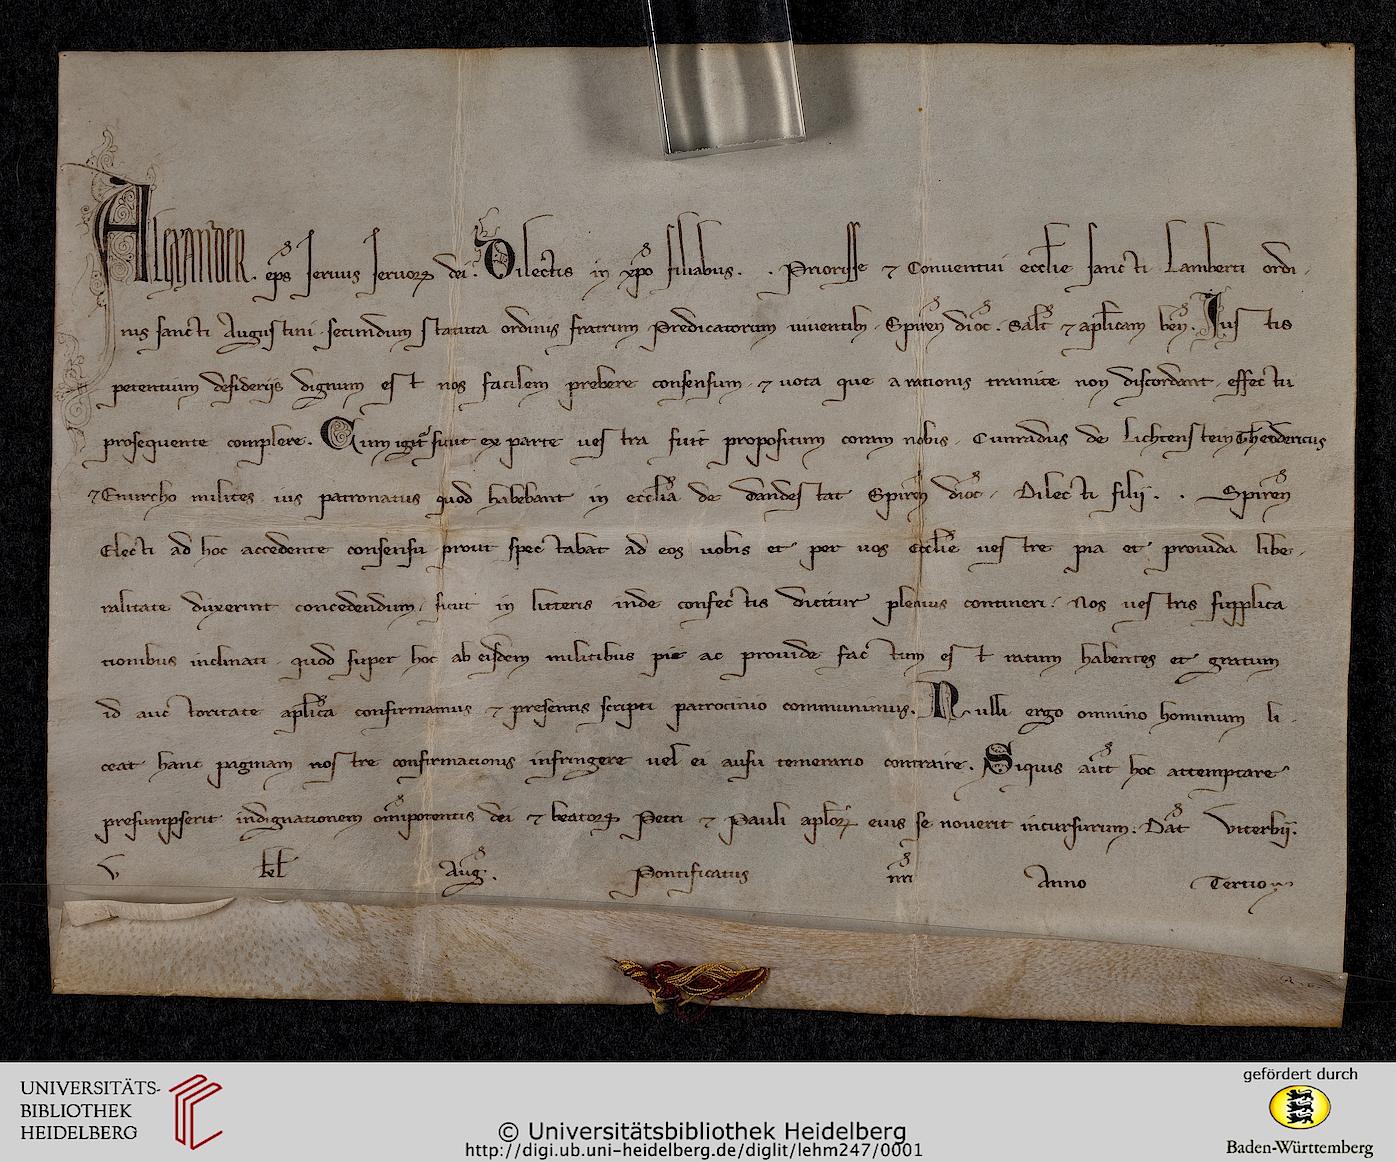 Alexander . ep̄s servus servorꝝ dei . Dilectis in xp̄o filiabus . . Priorisse ⁊ Conventui eccl̄ie sancti Lamberti ordi-
nis sancti Augustini secundum statuta ordinis fratrum Predicatorum viventib; Spiren̄ dioc̄ . Salt̄ ⁊ apl̄icam ben̄ . Iustis
petentium desideriis dignum est nos facilem prebere consensum ⁊ vota que a rationis tramite non discordant effectu
prosequente complere . Cum igit̄ sicut ex parte vestra fuit propositum coram nobis Cunradus de Lichtenstein Theodericus
⁊ milites ius patronatus quod habebant in eccl̄ia de Dandestat Spiren̄ dioc̄ Dilecti filii . . Spiren̄
Electi ad hoc accedente consensu prout spectabat ad eos vobis et per vos Eccl̄ie vestre pia et provida libe-
ralitate duxerint concedendum sicut in litteris inde confectis dicitur plenius contineri . Nos vestris supplica
tionibus inclinati quod super hoc ab eisdem militibus pie ac provide factum est ratum habentes et gratum
id auctoritate apl̄ica confirmamus ⁊ presentis scripti patrocinio communimus . Nulli ergo omnino hominum li-
ceat hanc paginam nostre confirmationis infringere vel ei ausu temerario contraire . Siquis aut̄ hoc attemptare
presumpserit indignationem om̄ipotentis dei ⁊ beatorꝝ Petri ⁊ Pauli apl̄orꝝ eius se noverit incursurum . Dat̄ Viterbii .
V kl̄ Aug̅ . Pontificatus nr̄i Anno Tertio
UNIVERSITÄTS-
BIBLIOTHEK
HEIDELBERG
© Universitätsbibliothek Heidelberg
http://digi.ub.uni-heidelberg.de/diglit/lehm247/0001
gefördert durch
Baden-Württemberg